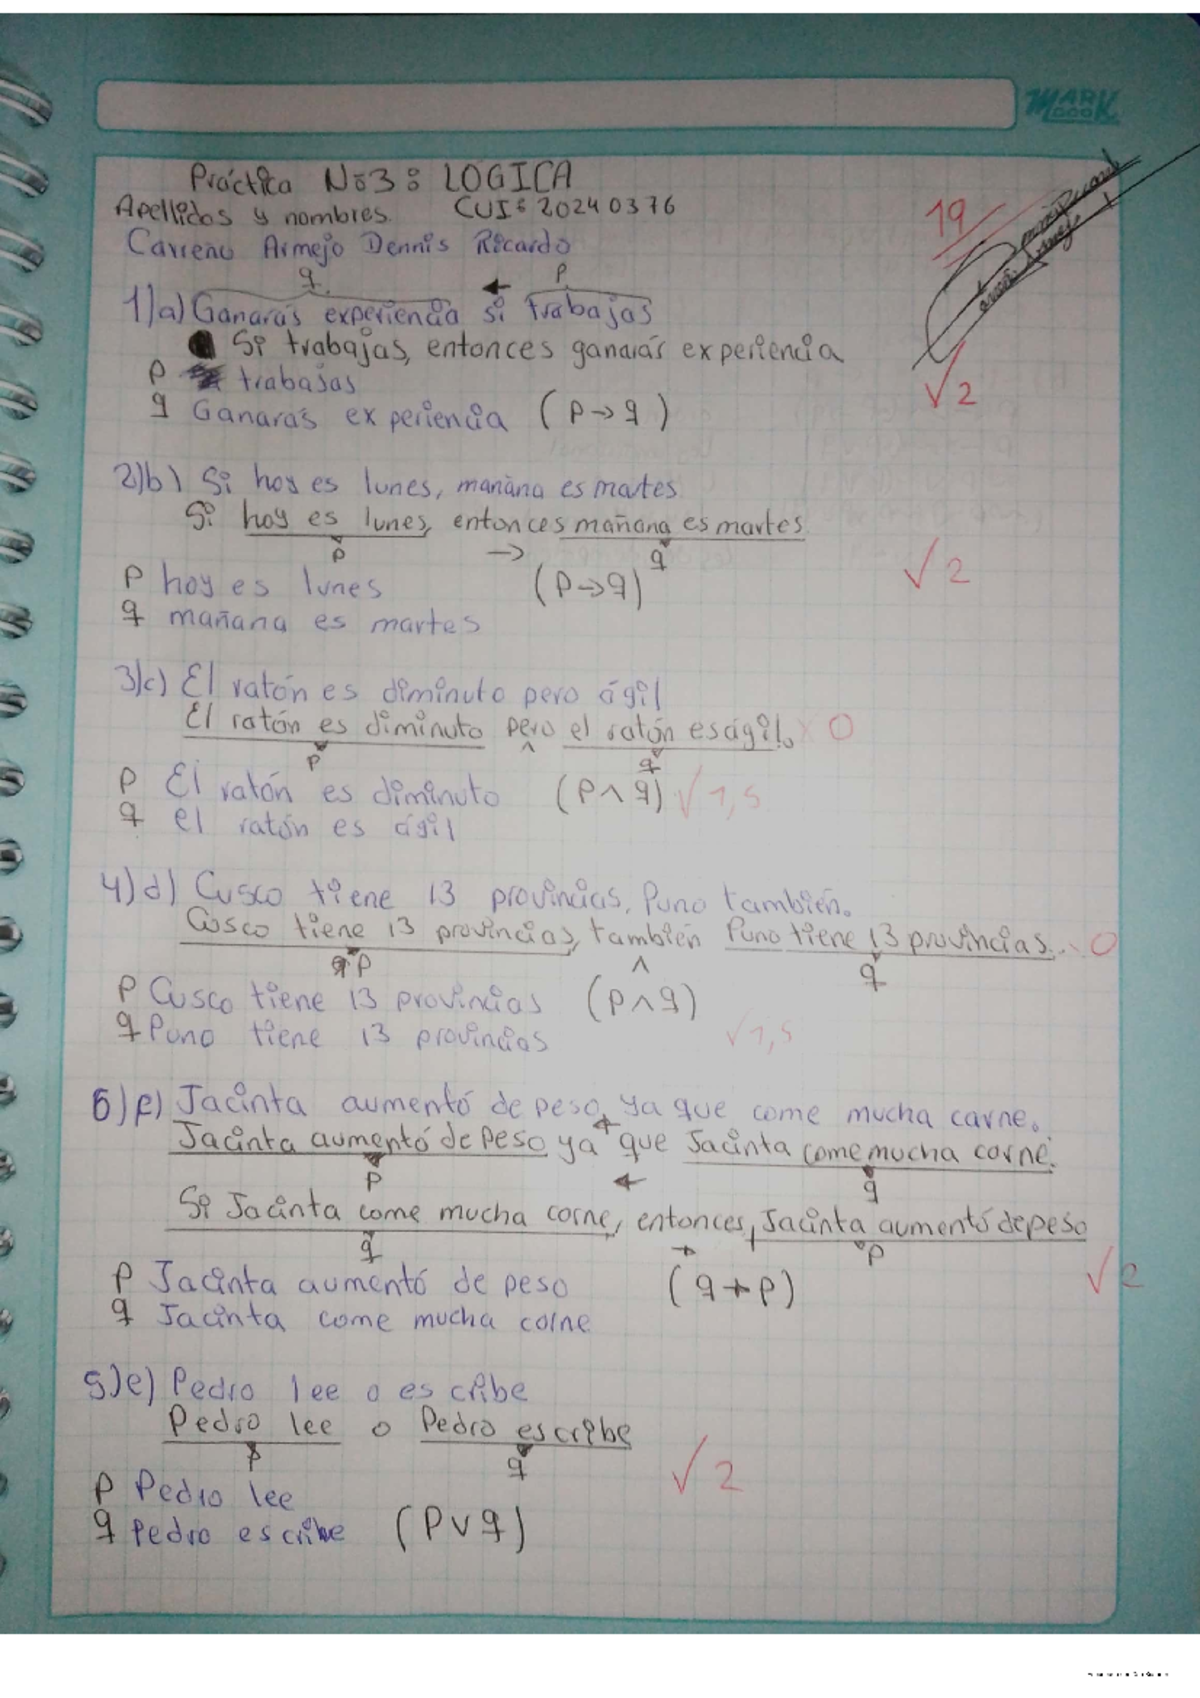 MARK
Práctica Nº3: LOGICA
Apellidos y nombres. CUI: 20240376
19
Carreño Armejo Dennis Ricardo
q ← p
1)a) Ganarás experiencia si trabajas
Si trabajas, entonces ganarás experiencia
p trabajas
√2
q Ganarás experiencia (p→q)
2)b) Si hoy es lunes, mañana es martes
Si hoy es lunes, entonces mañana es martes
p → q
p hoy es lunes (p→q)
√2
q mañana es martes
3)c) El ratón es diminuto pero ágil
El ratón es diminuto pero el ratón es ágil. x 0
p ^ q
p El ratón es diminuto (p∧q) √1,5
q el ratón es ágil
4)d) Cusco tiene 13 provincias, Puno también.
Cusco tiene 13 provincias, también Puno tiene 13 provincias. x 0
p ^ q
p Cusco tiene 13 provincias (p∧q)
q Puno tiene 13 provincias √1,5
6)f) Jacinta aumentó de peso, ya que come mucha carne.
←
Jacinta aumentó de peso ya que Jacinta come mucha carne.
p ← q
Si Jacinta come mucha carne, entonces, Jacinta aumentó de peso
q → p
p Jacinta aumentó de peso (q→p)
√2
q Jacinta come mucha carne
5)e) Pedro lee o escribe
Pedro lee o Pedro escribe
p q
√2
p Pedro lee
q Pedro escribe (p∨q)